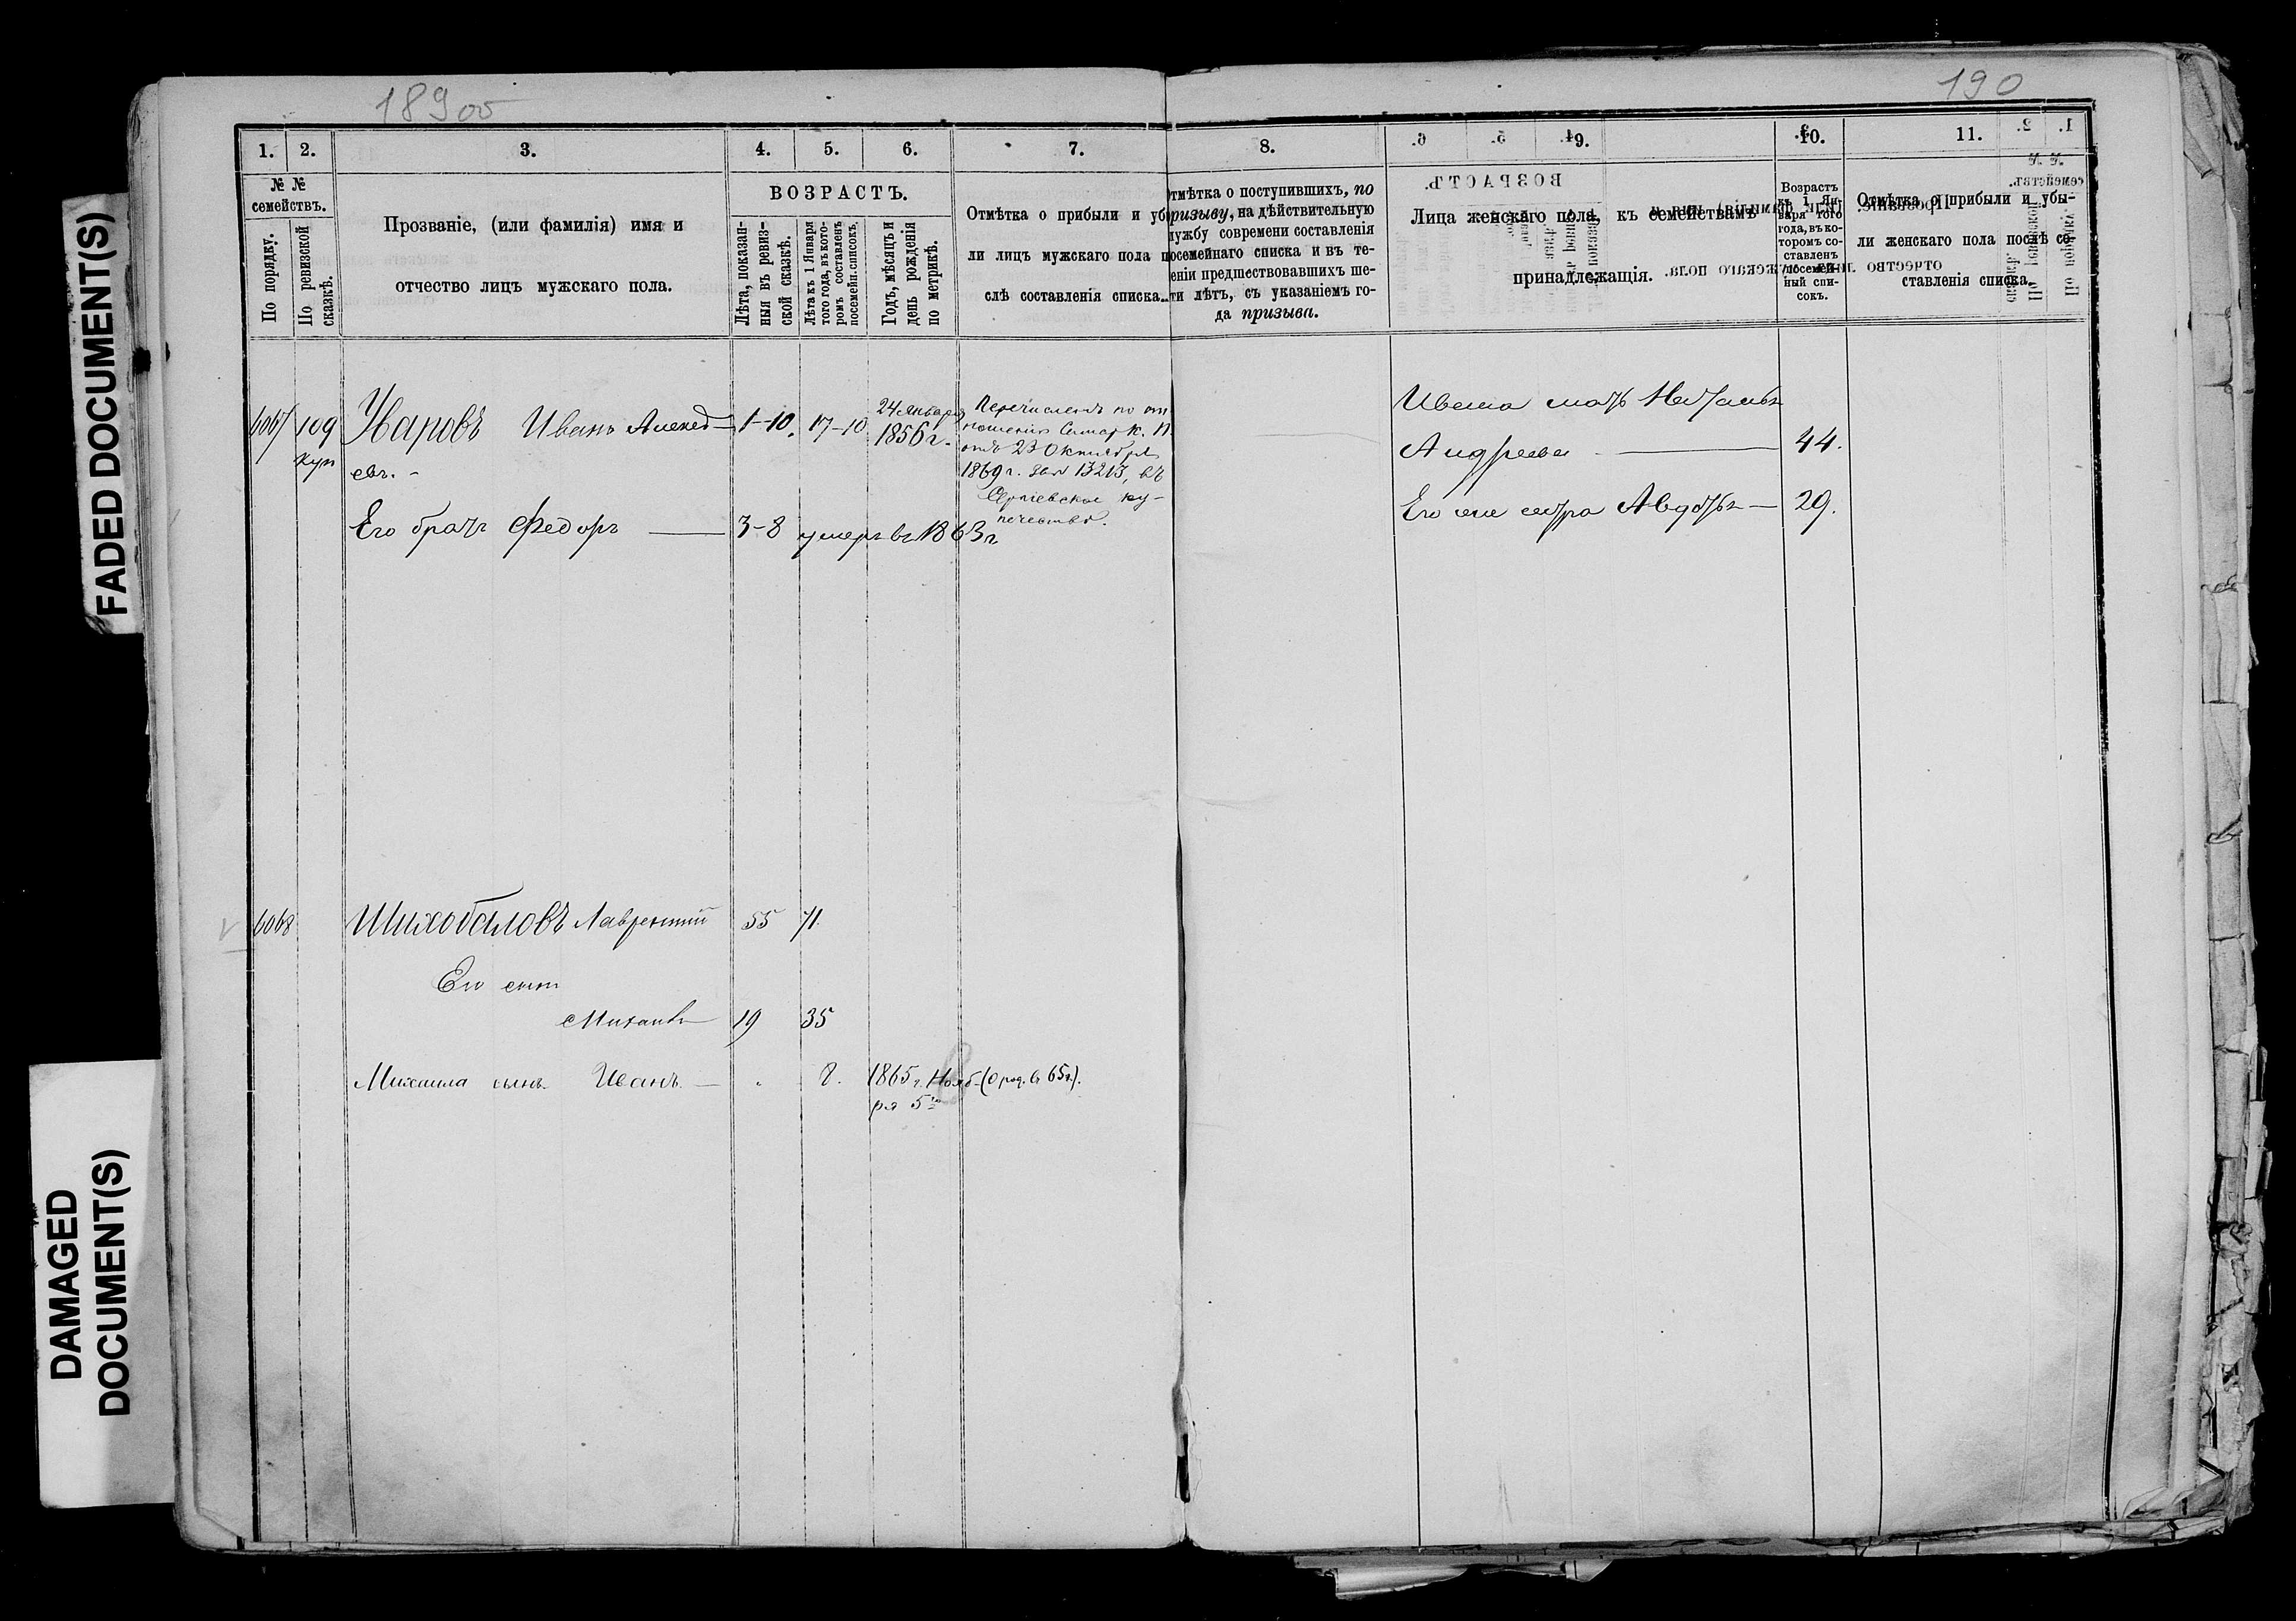 189 об
190
1. 2. 3. 4. 5. 6. 7. 8. 9. 10. 11.
№ № семействъ.
По порядку.
По ревизской сказкѣ.
Прозваніе, (или фамилія) имя и
отчество лицъ мужскаго пола.
ВОЗРАСТЪ.
Лѣта, показан-
ныя въ ревиз-
ской сказкѣ.
Лѣта къ 1 Января
того года, въ кото-
ромъ составленъ
посемейн. списокъ.
Годъ, мѣсяцъ и
день рожденія
по метрикѣ.
Отмѣтка о прибыли и убы
ли лицъ мужскаго пола по
слѣ составленія списка.
Отмѣтка о поступившихъ, по
призыву, на дѣйствительную
службу современи составленія
посемейнаго списка и въ те-
еніи предшествовавшихъ ше-
ти лѣтъ, съ указаніемъ го-
да призыва.
Лица женскаго пола, къ семействамъ
принадлежащія.
Возрастъ
къ 1 Ян-
варя того
года, въ ко-
торомъ со-
ставленъ
посемей-
ный спи-
сокъ.
Отмѣтка о прибыли и убы-
ли женскаго пола послѣ со-
ставленія списка.
6067 109 Уваровъ Иванъ Алексѣ— 1-10. 17-10 24 января
1856 г.
куп
евъ.
Перечисленъ по от
ношенію Самар. К. П.
отъ 23 Октября
1869 г. за № 13213, въ
Сергіевское ку-
печество.
Его братъ Федоръ — 3-8 умеръ въ 1863 г
Ивана мать Наталья
Андреева — 44.
Его же сестра Авдотья — 29.
6068 Шихобаловъ Лаврентій 55 71.
Его сынъ
Михаилъ 19 35
Михаила сынъ Иванъ — . 8. 1865 г. Нояб- (О род. въ 65 г.).
ря 5го
FADED DOCUMENT(S)
DAMAGED
DOCUMENT(S)